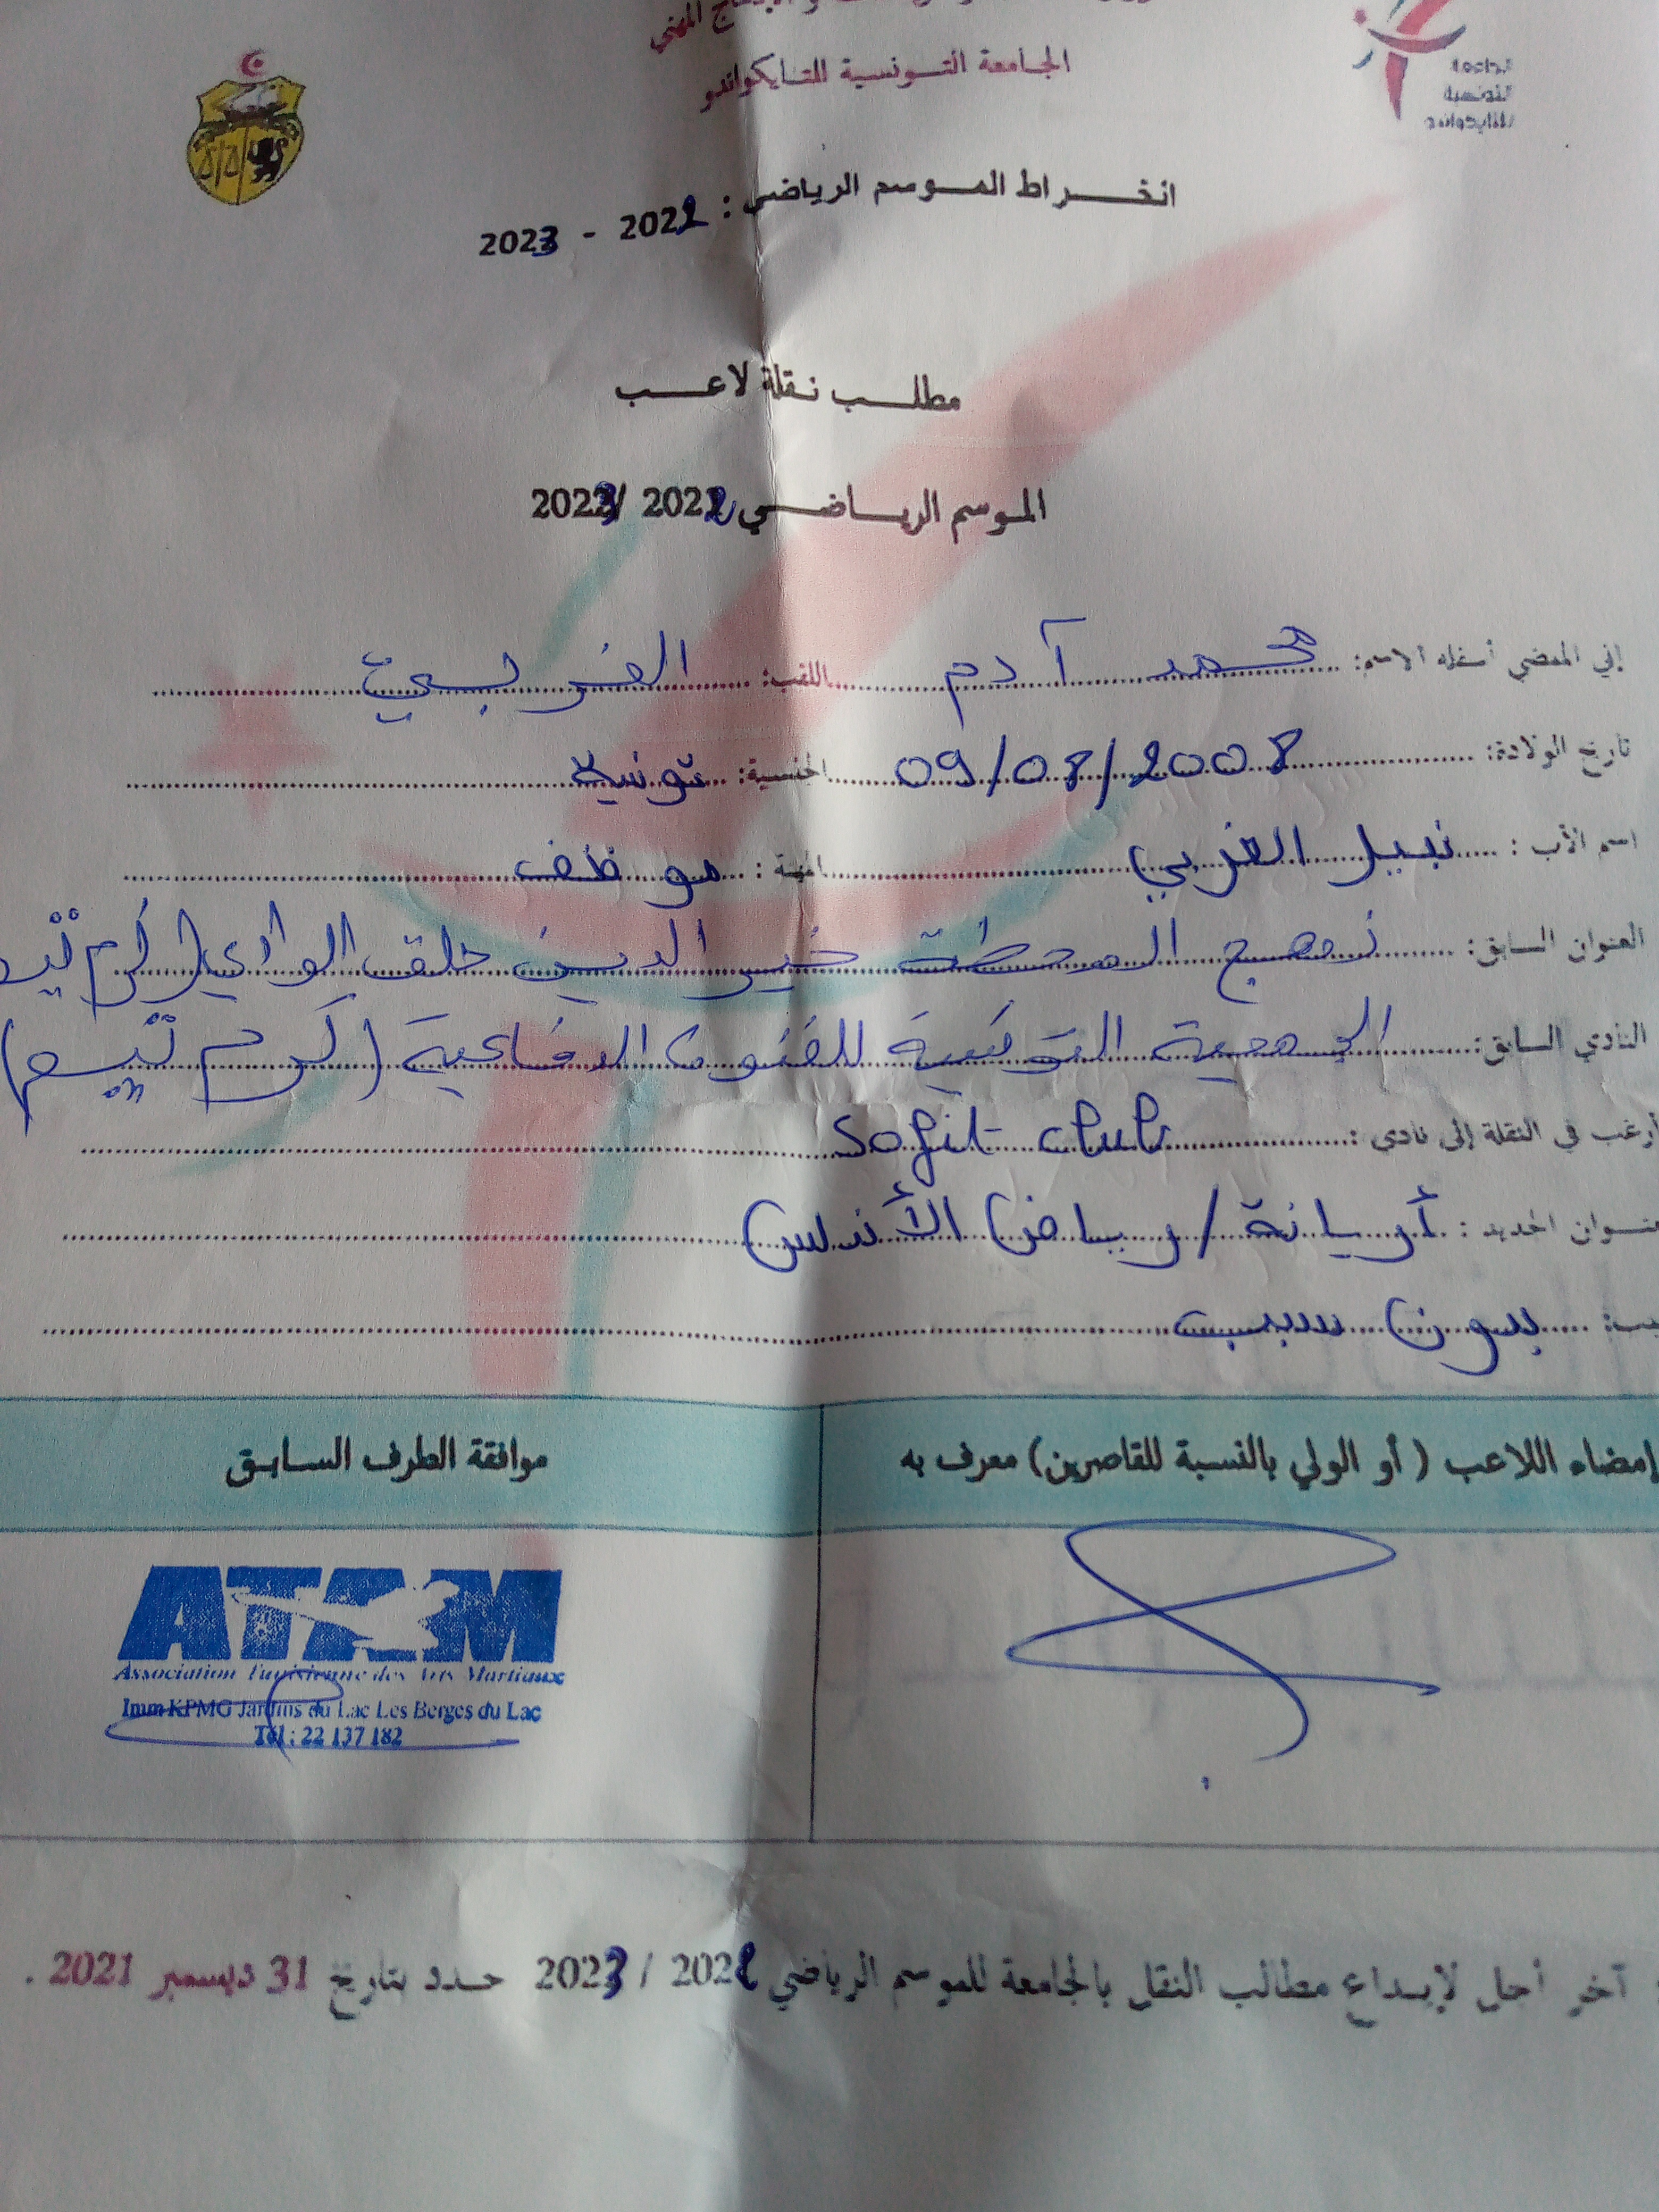 الجامعة التونسية للتايكواندو
الجامعة
التونسية
للتايكواندو
انخراط الموسم الرياضي : 2022 - 2023
مطلب نقلة لاعب
الموسم الرياضي 2022 /2023
إني الممضي أسفله الاسم: محمد آدم اللقب: الغربي
تاريخ الولادة: 09/08/2008 الجنسية: تونسية
اسم الأب : نبيل الغربي المهنة : موظف
العنوان السابق: نهج المحطة خير الدين حلق الوادي
النادي السابق: الجمعية التونسية للفنون الدفاعية (كرم
أرغب في النقلة إلى نادي : Sofit club
الجديد : أريانة / رياض الأندلس
بدون سبب
إمضاء اللاعب ( أو الولي بالنسبة للقاصرين) معرف به
موافقة الطرف السابق
ATAM
Association Tunisienne des Arts Martiaux
Imm KPMG Jardins du Lac Les Berges du Lac
Tél : 22 137 182
آخر أجل لإيداع مطالب النقل بالجامعة للموسم الرياضي 2022 / 2023 حدد بتاريخ 31 ديسمبر 2021 .